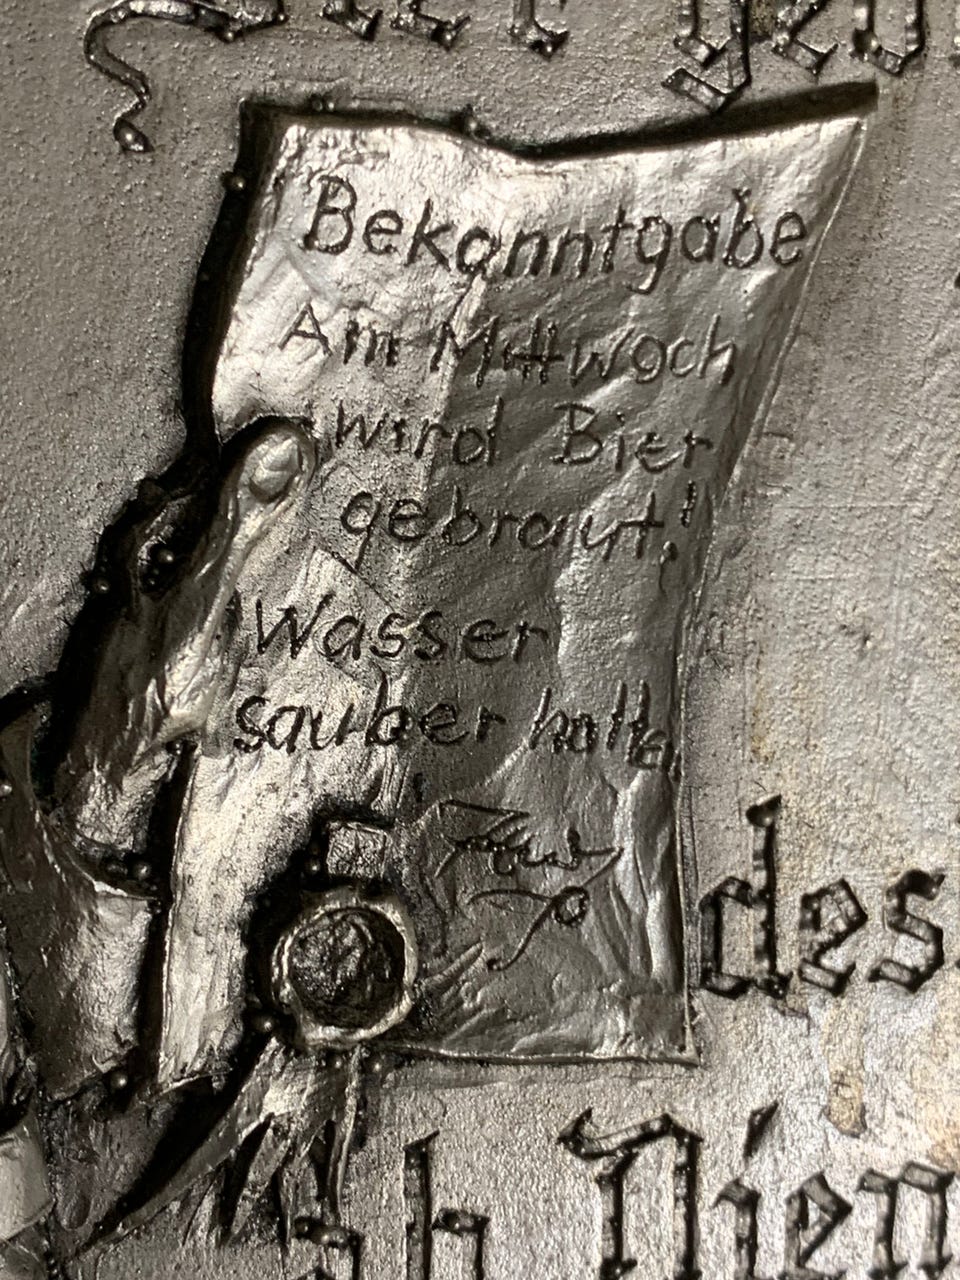 Bekanntgabe
Am Mittwoch
wird Bier
gebraut!
Wasser
sauber halten
des
ab Dien